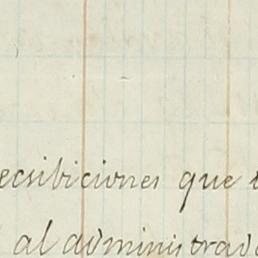 ecsibiciones que
al administrado